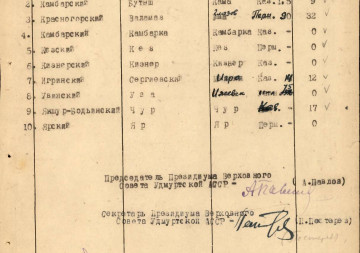 2. Камбарский Бутыш Кама Каз. 9 ✓
3. Красногорский Валамаз Глазов Перм. 90 32 ✓
4. Камбарский Камбарка Камбарка Каз. - 0 ✓
5. Кезский Кез Кез Перм. - 0 ✓
6. Кизнерский Кизнер Кизнер Каз. - 0 ✓
7. Игринский Сергиевский Игра Каз. 12 ✓
8. Увинский Ува Ижевск 75 0 ✓
9. Якшур-Бодьинский Чур Чур Каз. - 17 ✓
10. Ярский Яр Яр Перм. - 0
Председатель Президиума Верховного
Совета Удмуртской АССР - (А.Павлов)
Секретарь Президиума Верховного
Совета Удмуртской АССР -